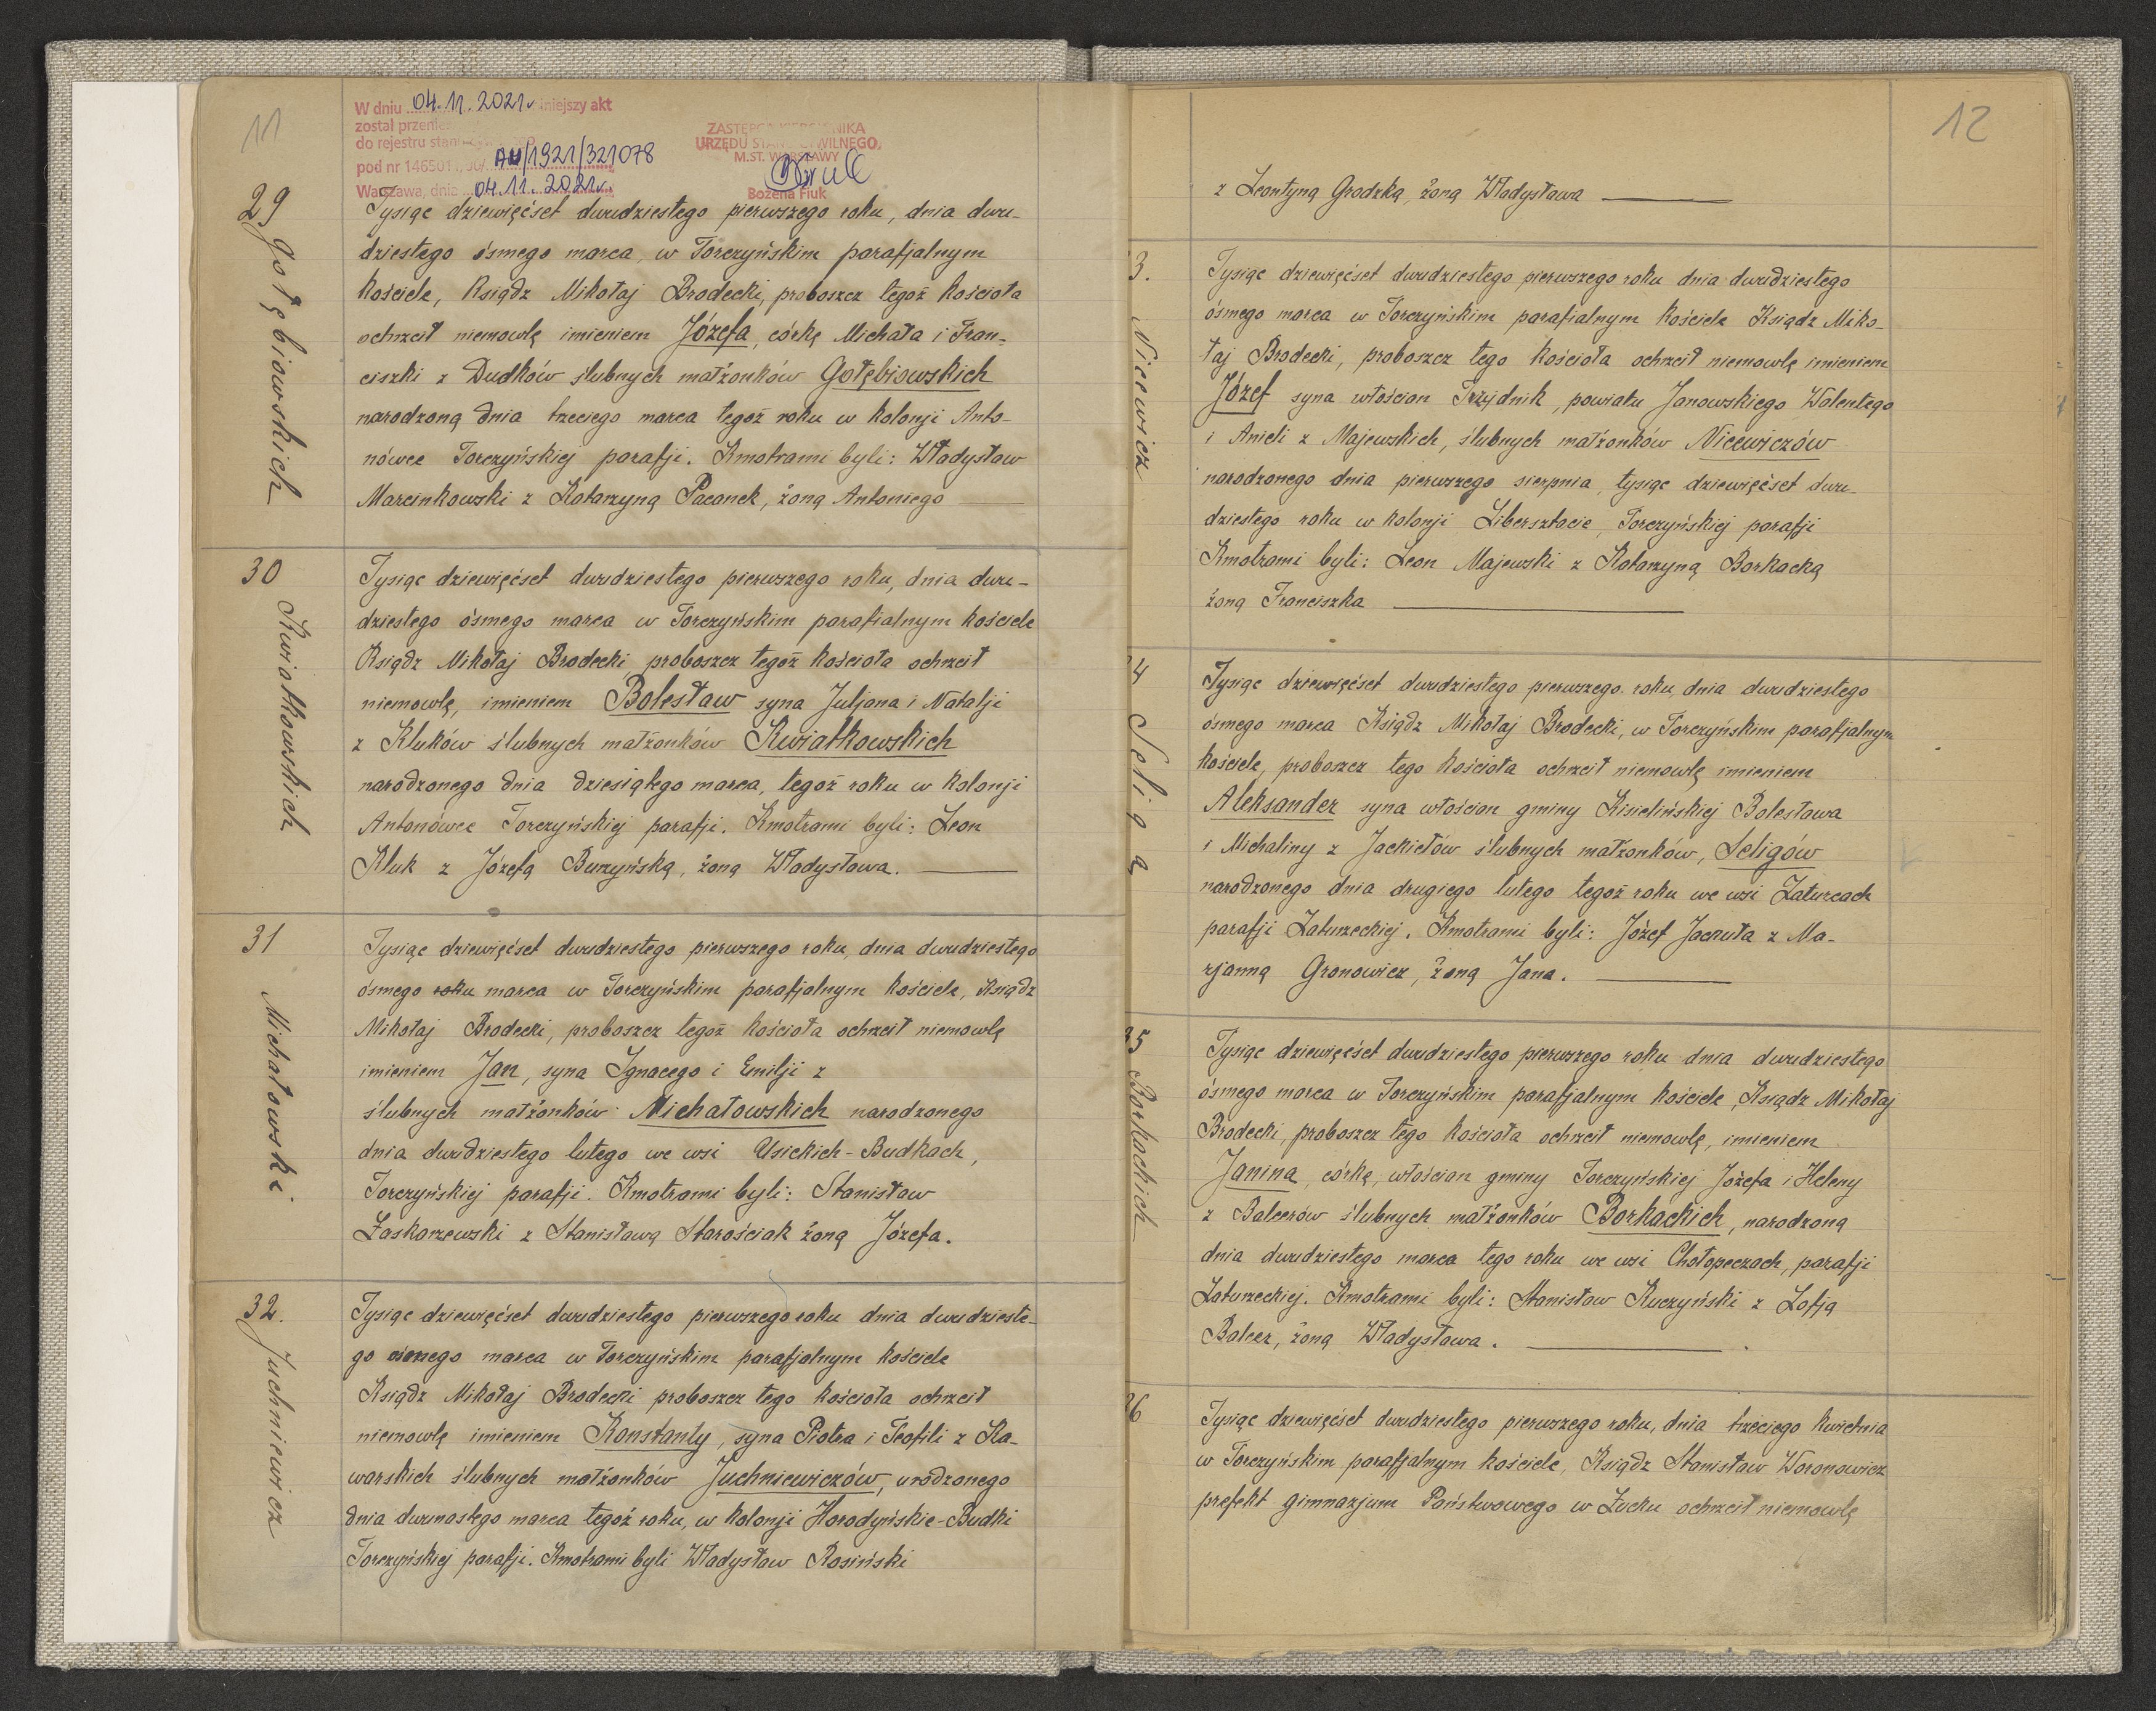 11
W dniu 04.11.2021r niniejszy akt
został przenie
do rejestru stanu
pod nr 146501 AU/1921/321078
Warszawa, dnia 04.11.2021r.
ZASTĘPCA KIEROWNIKA
URZĘDU STANU CYWILNEGO
M.ST. WARSZAWY
Bożena Fiuk
29
Gołębiowskich
Tysiąc dziewięćset dwudziestego pierwszego roku, dnia dwu-
dziestego ósmego marca, w Torczyńskim parafjalnym
kościele, Ksiądz Mikołaj Brodecki, proboszcz tegoż kościoła
ochrzcił niemowlę imieniem Józefa, córkę Michała i Fran-
ciszki z Dudków ślubnych małżonków Gołębiowskich
narodzoną dnia trzeciego marca tegoż roku w kolonji Anto-
nówce Torczyńskiej parafji. Kmotrami byli: Władysław
Marcinkowski z Katarzyną Pacanek, żoną Antoniego
30
Kwiatkowskich
Tysiąc dziewięćset dwudziestego pierwszego roku, dnia dwu-
dziestego ósmego marca w Torczyńskim parafialnym kościele
Ksiądz Mikołaj Brodecki proboszcz tegoż kościoła ochrzcił
niemowlę, imieniem Bolesław syna Juljana i Natalji
z Kluków ślubnych małżonków Kwiatkowskich
narodzonego dnia dziesiątego marca, tegoż roku w kolonji
Antonówce Torczyńskiej parafji. Kmotrami byli: Leon
Kluk z Józefą Burzyńską, żoną Władysława.
31
Michałowski
Tysiąc dziewięćset dwudziestego pierwszego roku, dnia dwudziestego
ósmego roku marca w Torczyńskim parafjalnym kościele, Ksiądz
Mikołaj Brodecki, proboszcz tegoż kościoła ochrzcił niemowlę
imieniem Jan, syna Ignacego i Emilji z
ślubnych małżonków Michałowskich narodzonego
dnia dwudziestego lutego we wsi Usickich-Budkach,
Torczyńskiej parafji. Kmotrami byli: Stanisław
Zaskarzewski z Stanisławą Starościak żoną Józefa.
32.
Juchniewicz
Tysiąc dziewięćset dwudziestego pierwszego roku dnia dwudzieste-
go osmego marca w Torczyńskim parafjalnym kościele
Ksiądz Mikołaj Brodecki proboszcz tego kościoła ochrzcił
niemowlę imieniem Konstanty, syna Piotra i Teofili z Ka-
warskich ślubnych małżonków Juchniewiczów, urodzonego
dnia dwunastego marca tegoż roku, w kolonji Horodyńskie-Budki
Torczyńskiej parafji. Kmotrami byli Władysław Rosiński
12
z Leontyną Grodzką, żoną Władysława
3.
Nicewicz
Tysiąc dziewięćset dwudziestego pierwszego roku dnia dwudziestego
ósmego marca w Torczyńskim parafialnym kościele Ksiądz Miko-
łaj Brodecki, proboszcz tego kościoła ochrzcił niemowlę imieniem
Józef syna włościan Trzydnik, powiatu Janowskiego Walentego
i Anieli z Majewskich, ślubnych małżonków Nicewiczów
narodzonego dnia pierwszego sierpnia, tysiąc dziewięćset dwu-
dziestego roku w kolonji Libersztacie, Torczyńskiej parafji
Kmotrami byli: Leon Majewski z Katarzyną Borkacką
żoną Franciszka
4
Seliga
Tysiąc dziewięćset dwudziestego pierwszego roku, dnia dwudziestego
ósmego marca Ksiądz Mikołaj Brodecki, w Torczyńskim parafjalnym
kościele, proboszcz tego kościoła ochrzcił niemowlę imieniem
Aleksander syna włościan gminy Kisielińskiej Bolesława
i Michaliny z Jackiełów ślubnych małżonków, Seligów
narodzonego dnia drugiego lutego tegoż roku we wsi Zaturcach
parafji Zaturzeckiej. Kmotrami byli: Józef Jackuła z Ma-
rjanną Gronowicz, żoną Jana.
35
Borkackich
Tysiąc dziewięćset dwudziestego pierwszego roku dnia dwudziestego
ósmego marca w Torczyńskim parafjalnym kościele, Ksiądz Mikołaj
Brodecki, proboszcz tego kościoła ochrzcił niemowlę, imieniem
Janina, córkę, włościan gminy Torczyńskiej Józefa i Heleny
z Balcerów ślubnych małżonków Borkackich, narodzoną
dnia dwudziestego marca tego roku we wsi Chołopeczach, parafji
Zaturzeckiej. Kmotrami byli: Stanisław Kuczyński z Zofją
Balcer, żoną Władysława.
36
Tysiąc dziewięćset dwudziestego pierwszego roku, dnia trzeciego kwietnia
w Torczyńskim parafjalnym kościele, Ksiądz Stanisław Woronowicz
prefekt gimnazjum Państwowego w Łucku ochrzcił niemowlę